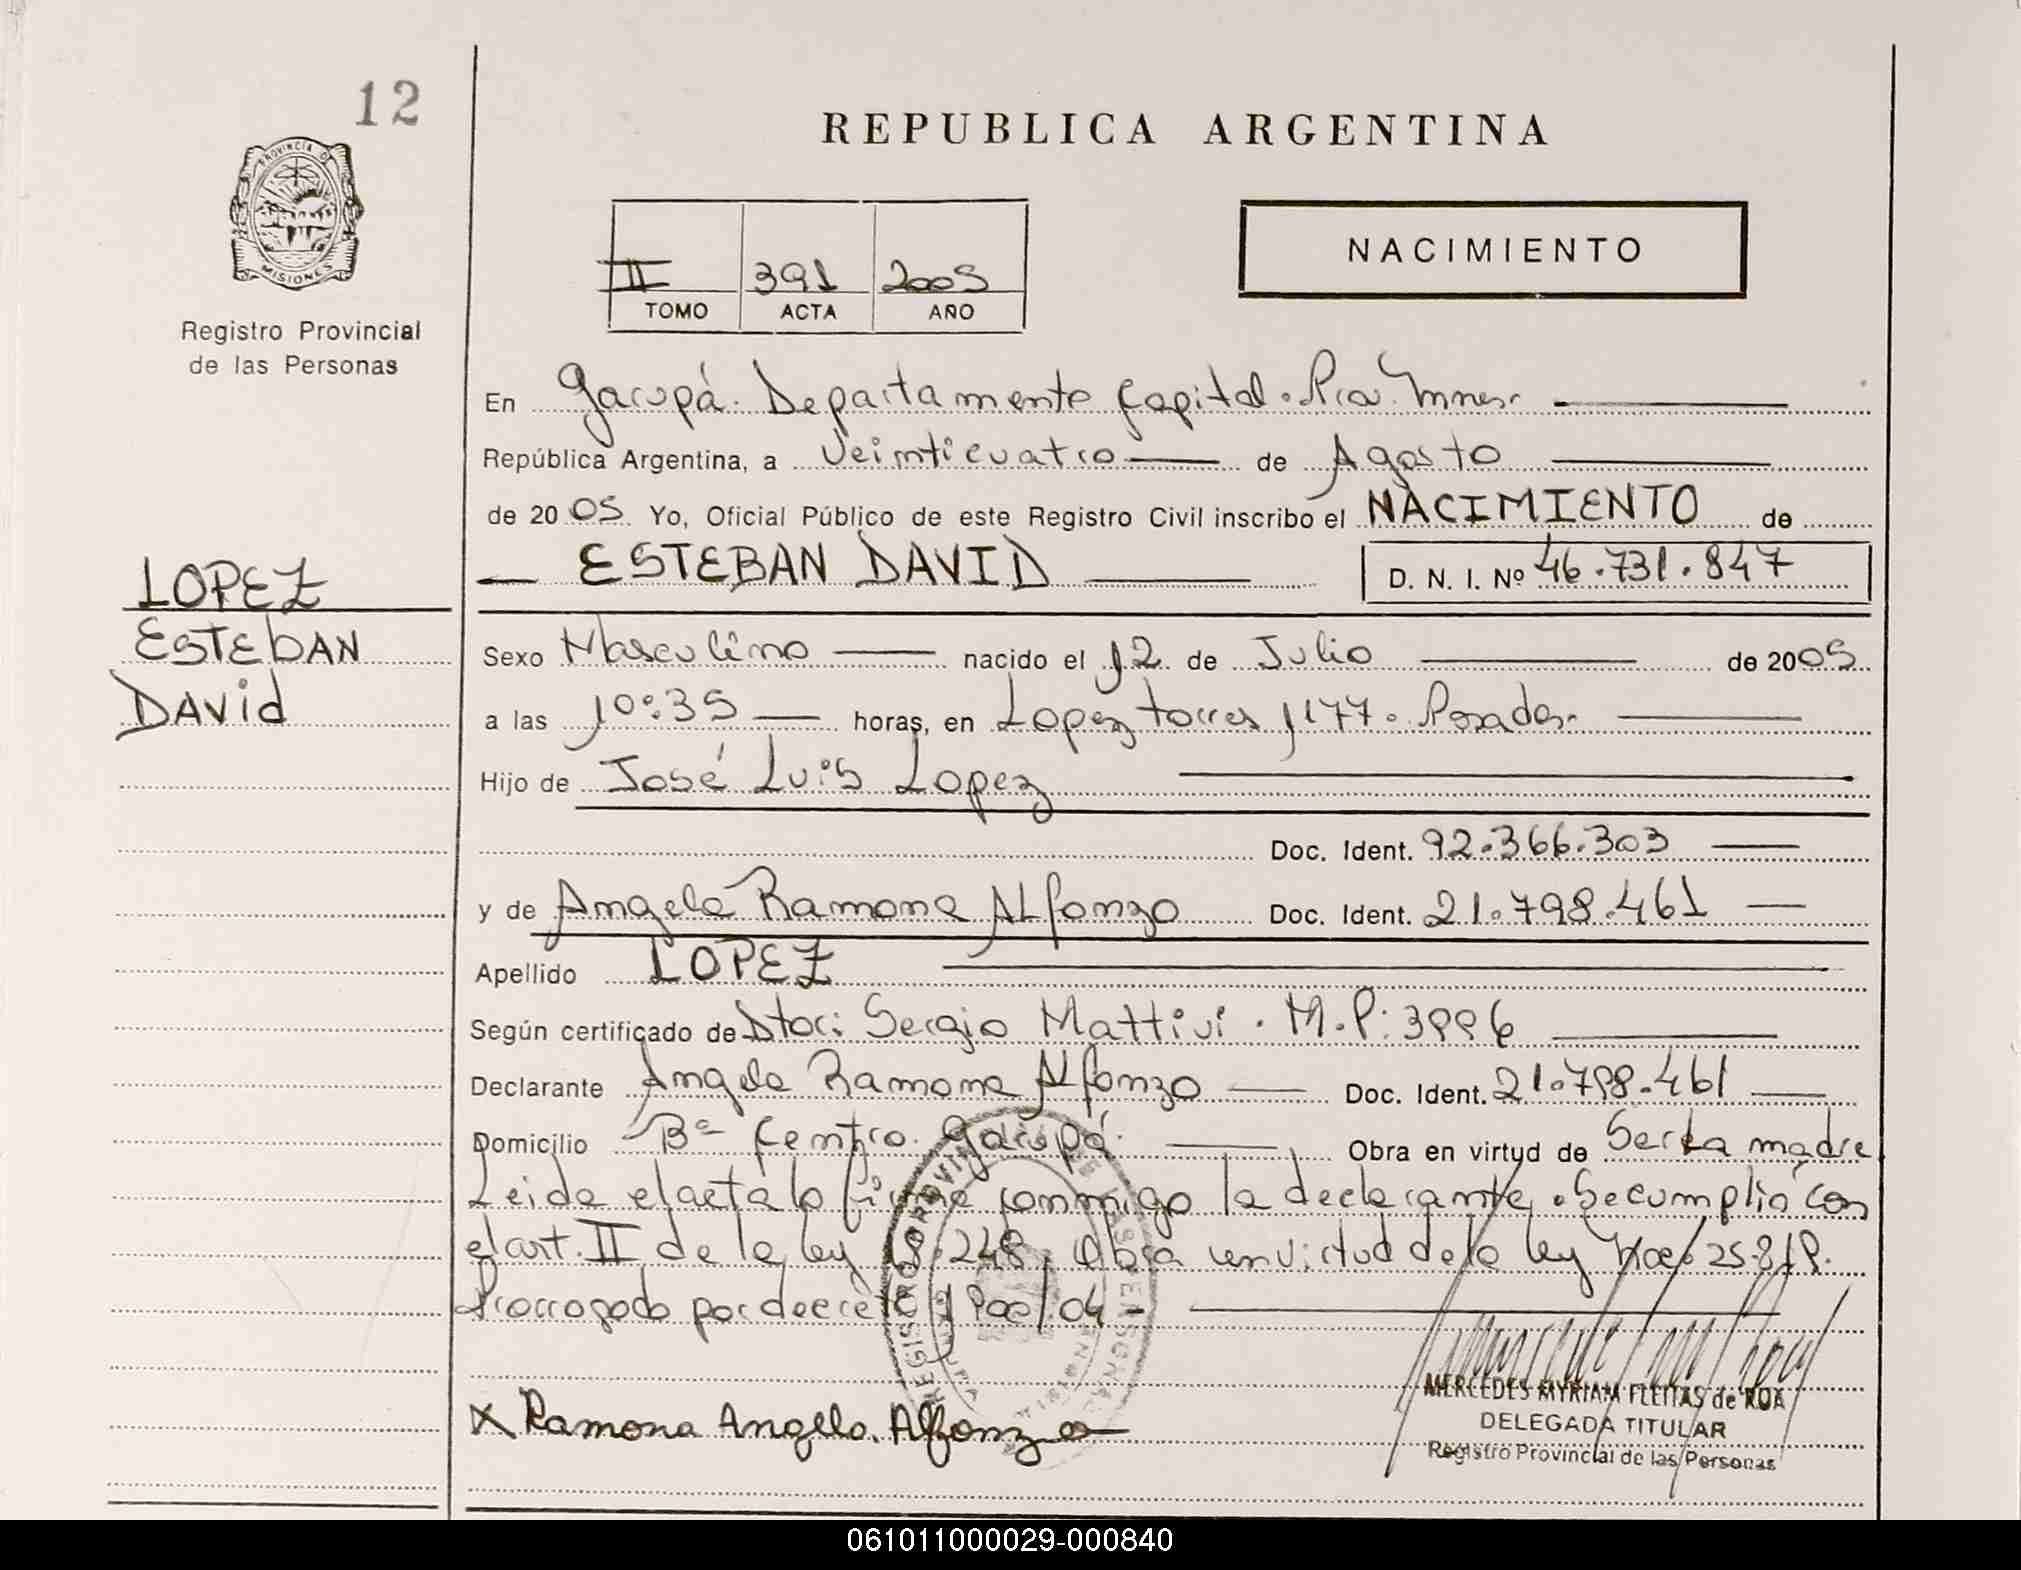 12
PROVINCIA DE
MISIONES
Registro Provincial
de las Personas
LOPEZ
ESTEbAN
DAVid
REPUBLICA ARGENTINA
II 391 2005
TOMO ACTA AÑO
NACIMIENTO
En Garupá. Departamento Capital.
República Argentina, a Veinticuatro de Agosto
de 2005 Yo, Oficial Público de este Registro Civil inscribo el NACIMIENTO de
ESTEBAN DAVID D. N. I. Nº 46.731.847
Sexo Masculino nacido el 12 de Julio de 2005
a las 10:35 horas, en Lopez torres 1177. Posadas.
Hijo de José Luis Lopez
Doc. Ident. 92.366.303
y de Angela Ramona ALfonzo Doc. Ident. 21.798.461
Apellido LOPEZ
Según certificado de Dtor: Sergio Mattivi. M.P:
Declarante Angela Ramona Alfonzo Doc. Ident. 21.798.461
Domicilio Bº Centro. Garupá. Obra en virtud de Ser la madre
Leida el acta la firma conmigo la declarante. Se cumplió con
el art. II de la ley 18.248. Obra en virtud de la ley
Prorrogado por decreto
X Ramona Angela Alfonzo
MERCEDES MYRIAM FLEITAS de ROA
DELEGADA TITULAR
Registro Provincial de las Personas
061011000029-000840